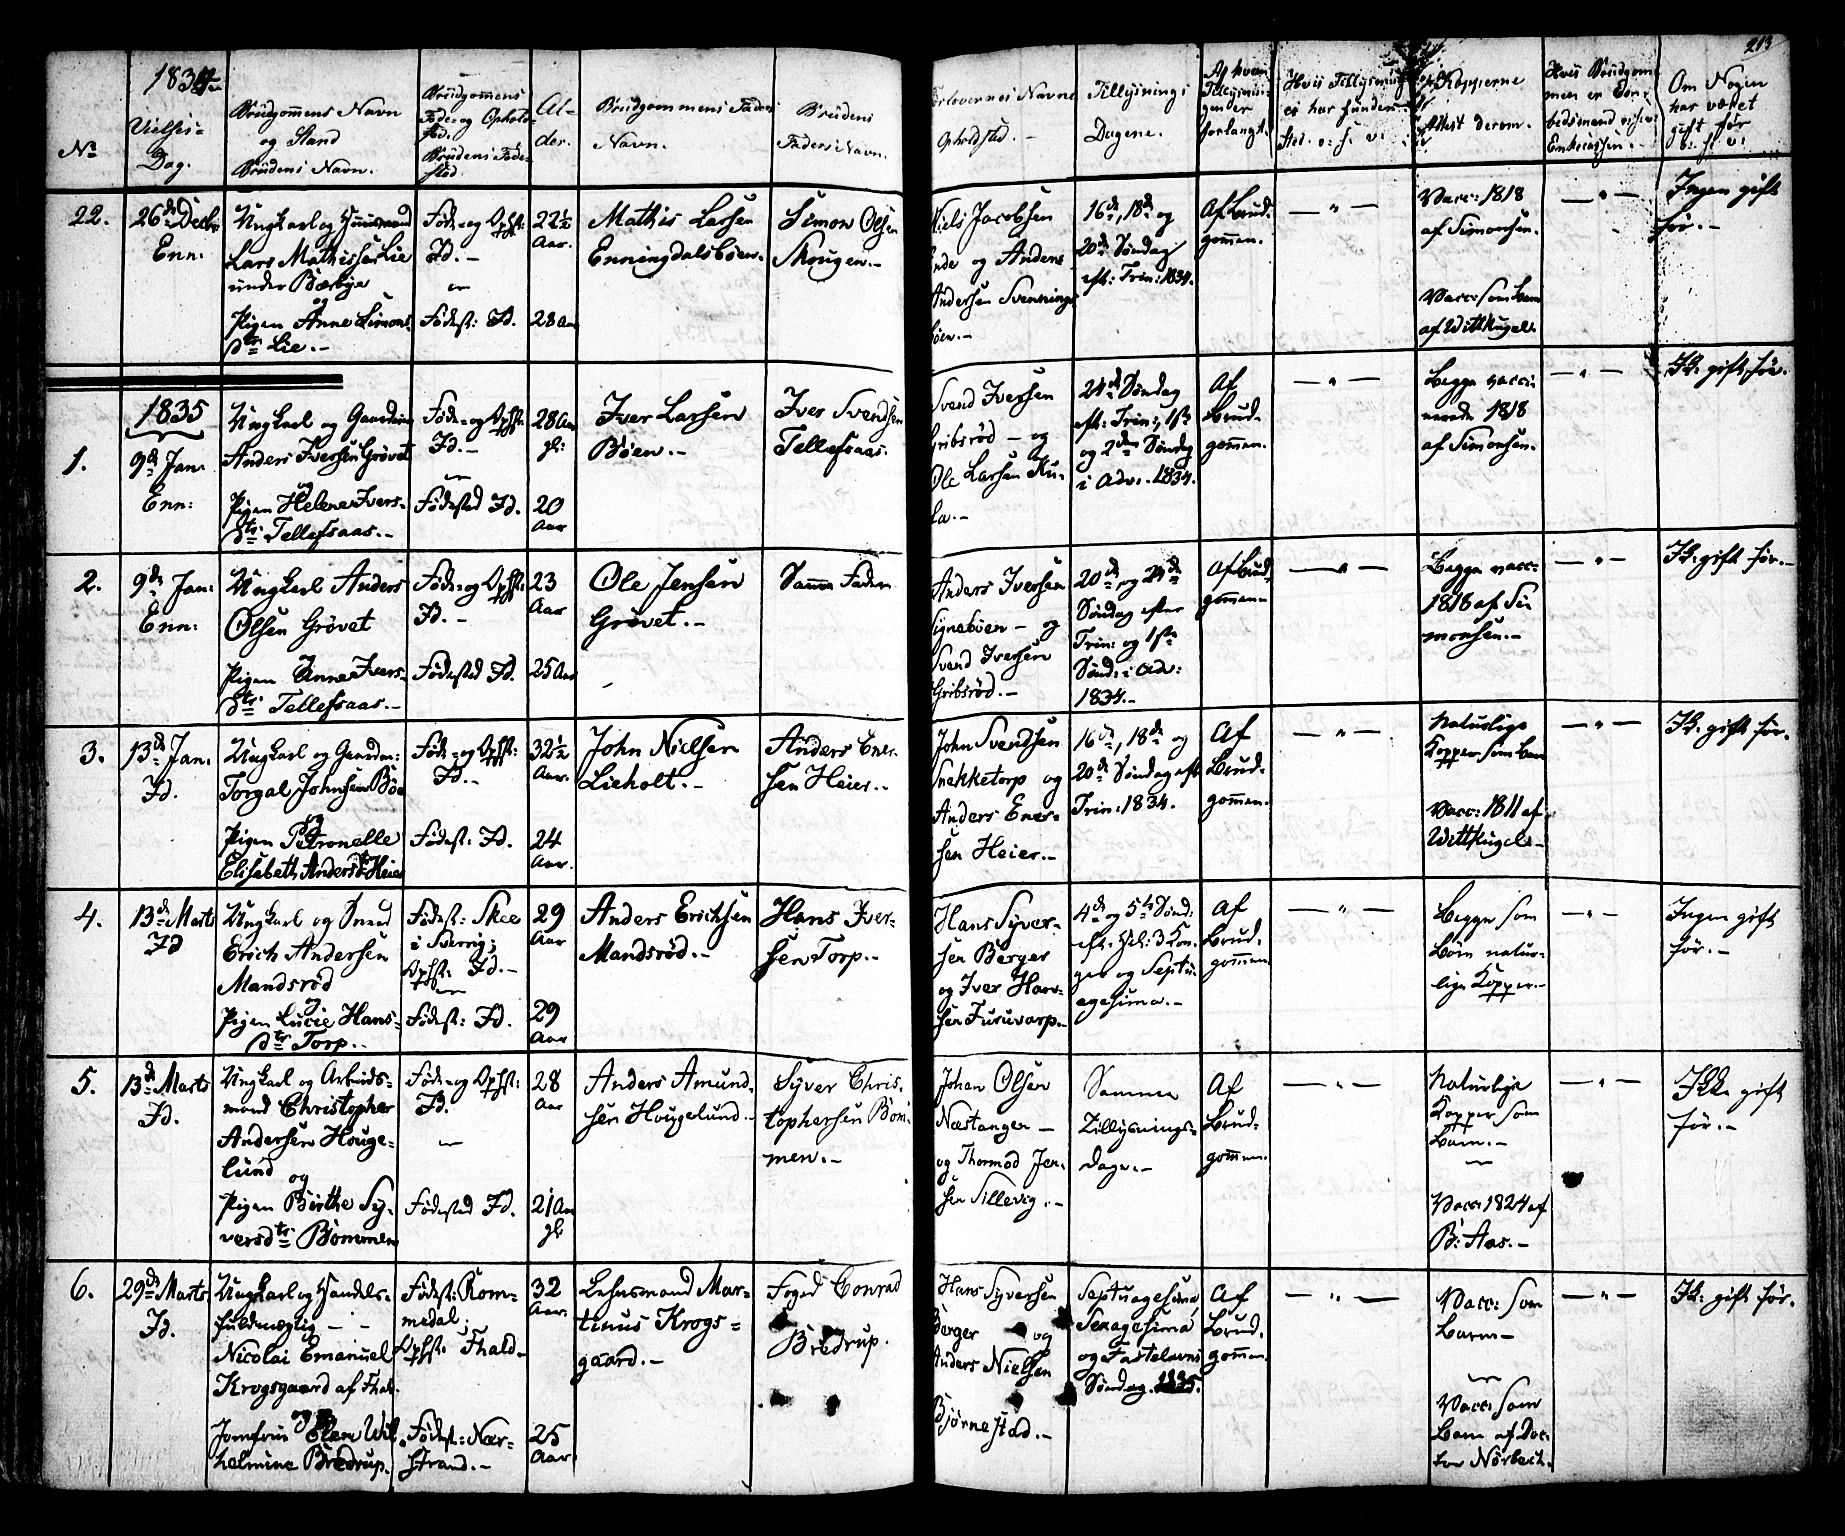 213
1834
No
Vielses-
Dag.
Brudgommens Navn
og Stand
Brudens Navn.
Brudgommens
Føde- og Opholds-
sted.
Brudens Føde-
sted.
Al-
der.
Brudgommens Faders
Navn.
Brudens
Faders Navn.
Forlovernes Navne
Opholdsted.
Tillysnings
Dagene.
Af hvem
Tillysnin-
gen er
forlangt.
Hvis Tillysning
ei har funden
Sted o: s: v:
Kopperne
Attest derom.
Hvis Brudgom-
men er En-
Om Nogen
har været
gift før
o: s: v:
22.
26de Decbr
Enn:
Ungkarl og Huusmand
Lars Mathissen Lie
under Bærbye
og
Pigen Anne Simons-
dtr Lie.
Føde- og Ophst:
Id.
Fødest: Id.
22½
Aar.
28 Aar
Mathis Larsen
Enningdalsbøen.
Simon Olsen
Skougen.
Niels Jacobsen
Ende og Anders
Andersen Svennings-
bøen.
16de, 18de og
20de Søndag
eft: Trin: 1834.
Af Brud-
gommen.
— " —
Vacc: 1818
af Simonsen.
Vacc: som Barn
af Wittkugel.
— " —
Ingen gift
før.
1835
1.
9de Jan:
Enn:
Ungkarl og Gaardm:
Anders Iversen Grøvet
og
Pigen Helene Ivers-
dtr: Tellefsaas.
Føde- og Ophst:
Id.
Fødested Id.
28 Aar
gl:
20
Aar
Iver Larsen
Bøen.
Iver Svendsen
Tellefsaas.
Svend Iversen
Gribsrød og
Ole Larsen Ku-
la.
24de Søndag
eft: Trin:, 1ste
og 2den Søndag
i Adv. 1834.
Af
Brud-
gommen.
— " —
Begge vacci-
nerede 1818
af Simonsen.
— " —
Ik: gift før.
2.
9de Jan:
Enn:
Ungkarl Anders
Olsen Grøvet
Pigen Anne Ivers-
dtr: Tellefsaas.
Føde- og Ophst:
Id.
Fødested Id.
23
Aar
25 Aar
Ole Jensen
Grøvet.
Samme Fader
Anders Iversen
Signebøen — og
Svend Iversen
Gribsrød.
20de og 24de
Søndag efter
Trin: og 1ste
Sønd: i Adv:
1834.
Af Brud-
gommen.
— " —
Begge vacc:
1818 af Si-
monsen.
— " —
Ik: gift før.
3.
13de Jan.
Id.
Ungkarl og Gaardm:
Torgal Johnsen Bøe
og
Pigen Petronelle
Elisabeth Andersdtr Heier
Føde- og Ophst:
Id.
Fødest: Id.
32½
Aar.
24
Aar.
John Nielsen
Lieholt.
Anders Ener-
sen Heier.
John Svendsen
Snekketorp og
Anders Ener-
sen Heier.
16de, 18de og
20de Søndag eft
Trin: 1834.
Af
Brud-
gommen.
— " —
Naturlige
Kopper som Barn
Vacc: 1811 af
Wittkugel.
— " —
Ik: gift før.
4.
13de Marts
Id
Ungkarl og Smed
Erich Andersen
Mandsrød
og
Pigen Lucie Hans-
dtr Torp.
Fødest: Skee
i Sverrig;
Ophst: Id.
Fødest: Id.
29
Aar
29
Aar
Anders Erichsen
Mandsrød.
Hans Iver-
sen Torp.
Hans Syver-
sen Berger
og Iver Han-
sen Furuvarp.
4de og 5te Sønd:
eft: Hel: 3 Kon-
ger og Septu-
agesima.
Af
Brud-
gommen.
— " —
Begge som
Børn natur-
lige Kopper.
— " —
Ingen gift
før.
5.
13de Marts
Id.
Ungkarl og Arbeids-
mand Christopher
Andersen Houge-
lund
og
Pigen Birthe Sy-
versdtr Bommen
Føde- og Ophst:
Id.
Fødested Id.
28
Aar
21 Aar
gl
Anders Amund-
sen Hougelund.
Syver Chris-
tophersen Bom-
men.
Johan Olsen
Næstangen
og Thormod Jen-
sen Sillevig.
Samme
Tillysnings-
dage.
Af
Brud-
gommen.
— " —
Naturlige
Kopper som
Barn.
Vacc: 1824 af
B: Aas.
— " —
Ikke gift
før.
6.
29de Marts
Id.
Ungkarl og Handels-
fuldmægtig
Nicolai Emanuel
Krogsgaard af Fhald.
og
Jomfrue Elen Wil-
helmine Bredrup.
Fødest: Rom-
medal;
Ophst: Fhald.
Fødest: Nær-
strand.
32
Aar.
25
Aar.
Lehnsmand Mar-
tinus Krogs-
gaard.
Foged Conrad
Bredrup.
Hans Syversen
Berger og
Anders Nielsen
Bjørnestad.
Septuagesima,
Sexagesima
og Fastelavns
Søndag. 1835.
Af
Brud-
gommen.
— " —
Vacc: som
Barn
Vacc: som
Barn af Doc-
tor Nörbech.
— " —
Ik: gift før.